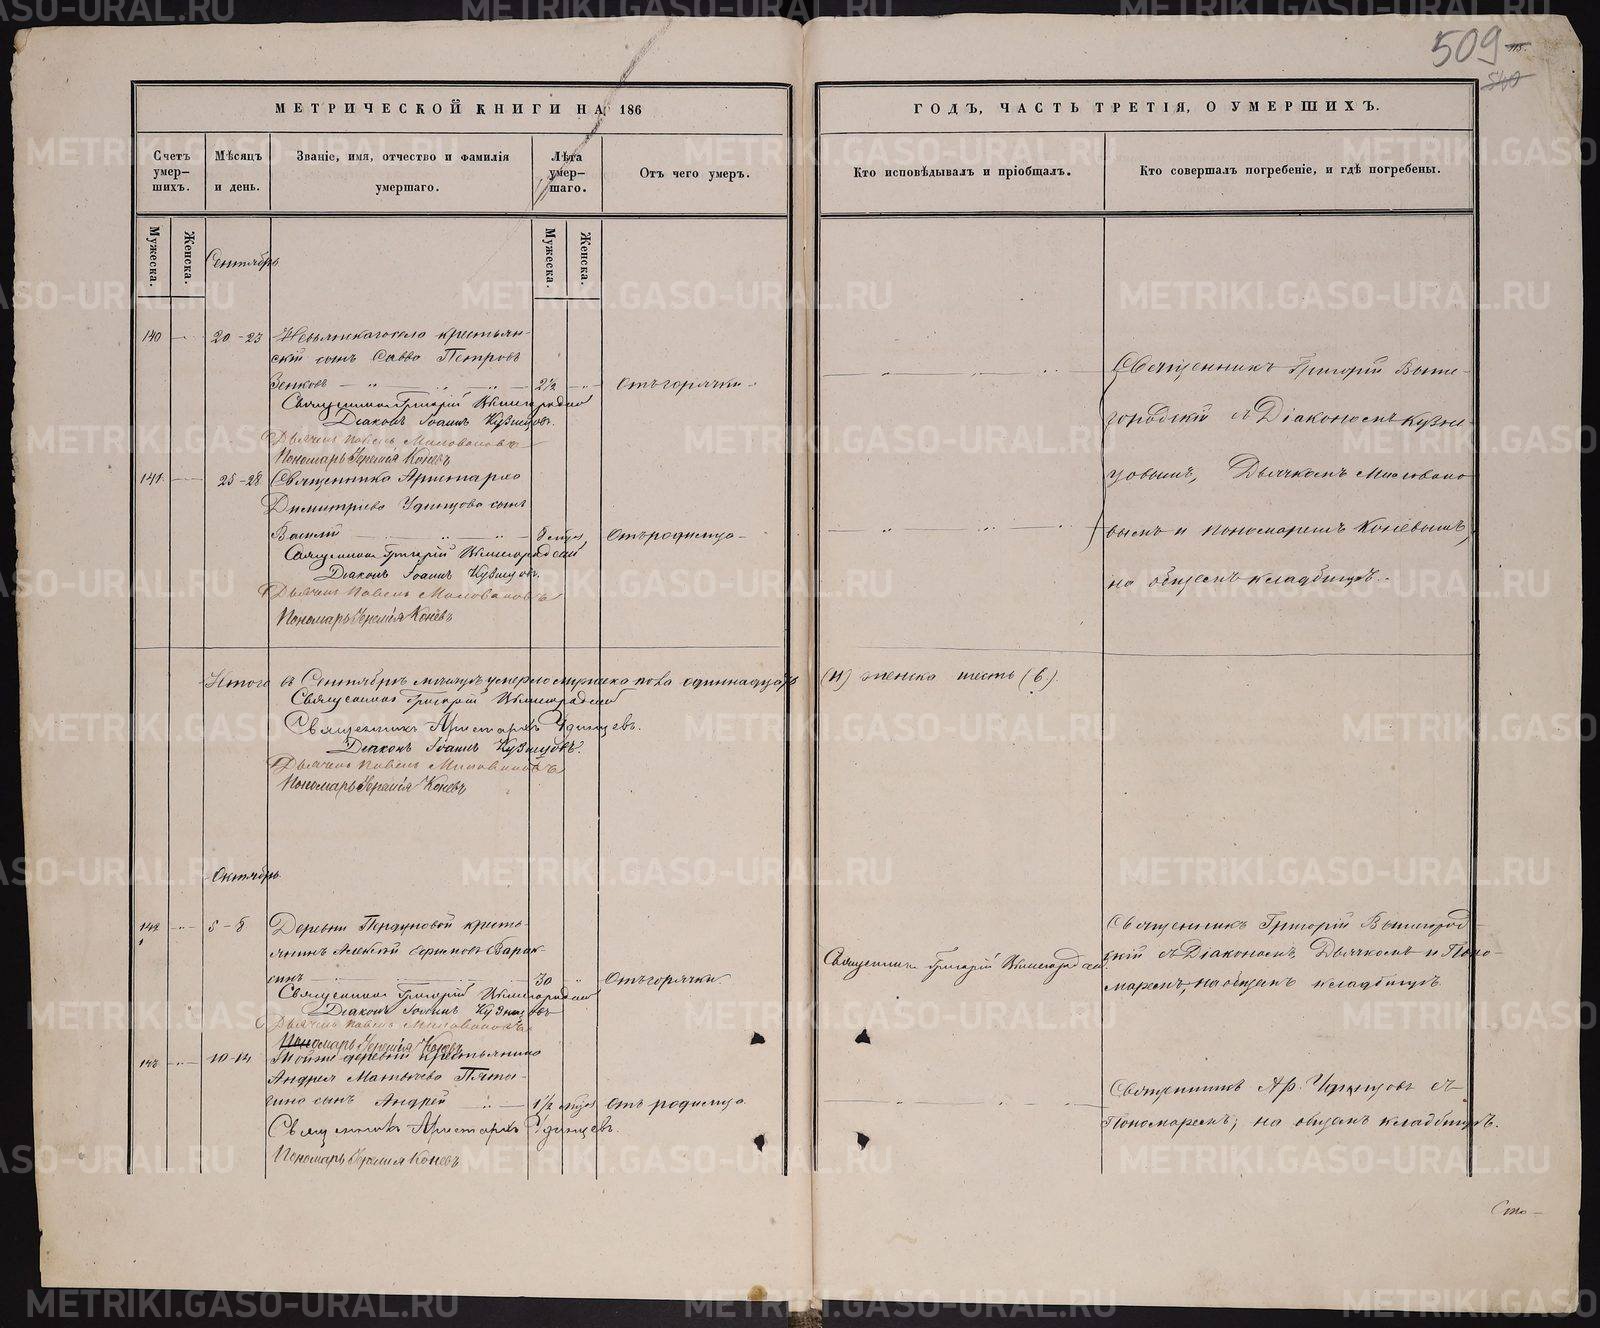 509
540
МЕТРИЧЕСКОЙ КНИГИ НА 186
ГОДЪ, ЧАСТЬ ТРЕТІЯ, О УМЕРШИХЪ.
Счетъ умер-шихъ.
Мѣсяцъ и день.
Званіе, имя, отчество и фамилія умершаго.
Лѣта умер-шаго.
Отъ чего умеръ.
Кто исповѣдывалъ и пріобщалъ.
Кто совершалъ погребеніе, и гдѣ погребены.
Мужеска.
Женска.
Мужеска.
Женска.
Сентябрь
140
20-23
крестьян-
скій сынъ Савва Петровъ
Зенковъ
2½
Отъ горячки
Священникъ Григорій Вышегородскій
Діаконъ Іоаннъ Кузнецовъ.
Дьячекъ Павелъ Миловановъ
Пономарь Іеремія Коневъ
Священникъ Григорій Выше-
городскій съ Діакономъ Кузне-
цовымъ, Дьячкомъ Миловано-
вымъ и Пономаремъ Коневымъ,
на общемъ кладбищѣ.
141
25-28
Священника Аристарха
Димитріева Удинцова сынъ
Василій
Отъ родимца
Священникъ Григорій Вышегородскій
Діаконъ Іоаннъ Кузнецовъ.
Дьячекъ Павелъ Миловановъ
Пономарь Іеремія Коневъ
Итого въ Сентябрѣ мѣсяцѣ умерло мужеска пола одиннадцать (11) женска шесть (6.)
Священникъ Григорій Вышегородскій
Священникъ Аристархъ Удинцевъ.
Діаконъ Іоаннъ Кузнецовъ.
Дьячекъ Павелъ Миловановъ
Пономарь Іеремія Коневъ
Октябрь
142
5-8
Деревни крестья-
нинъ Алексій
синъ
30
Отъ горячки
Священникъ Григорій Вышегородскій
Священникъ Григорій Вышегород-
скій съ Діакономъ, Дьячкомъ и Поно-
маремъ, на общемъ кладбищѣ.
Священникъ Григорій Вышегородскій
Діаконъ Іоаннъ Кузнецовъ
Дьячекъ Павелъ Миловановъ
Пономарь Іеремія Коневъ
143
10-14
Той же деревни крестьянина
Андрея Матвѣева
сынъ Андрей
1½ мѣсяц
Отъ родимца.
Священникъ Ар. Удинцовъ съ
Пономаремъ, на общемъ кладбищѣ.
Священникъ Аристархъ Удинцевъ.
Пономарь Іеремія Коневъ
Сто-
METRIKI.GASO-URAL.RU